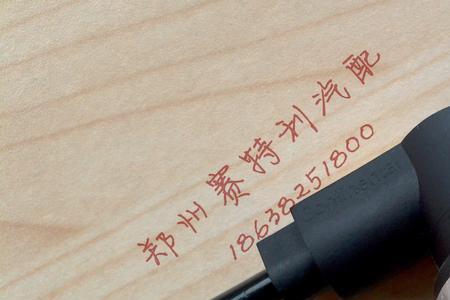 郑州赛特利汽配
18638251800